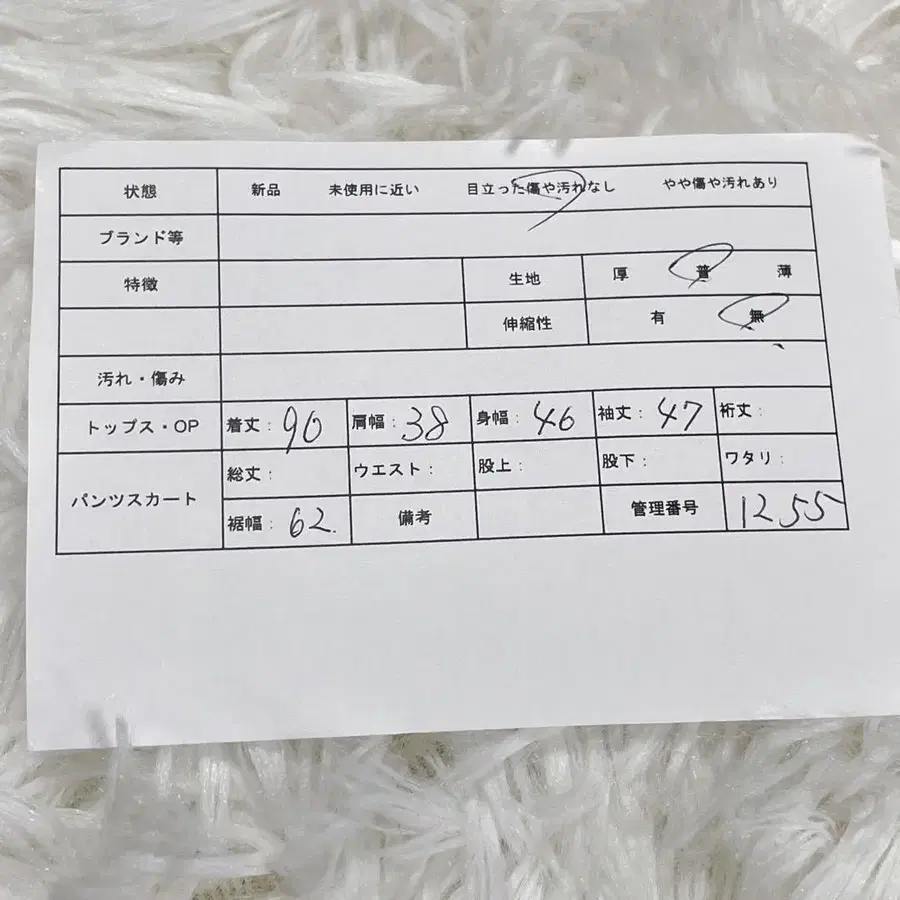 状態 新品 未使用に近い 目立った傷や汚れなし やや傷や汚れあり
ブランド等
特徴 生地 厚 普 薄
伸縮性 有 無
汚れ・傷み
トップス・OP 着丈: 90 肩幅: 38 身幅: 46 袖丈: 47 裄丈:
パンツスカート 総丈: ウエスト: 股上: 股下: ワタリ:
裾幅: 62. 備考 管理番号 1255